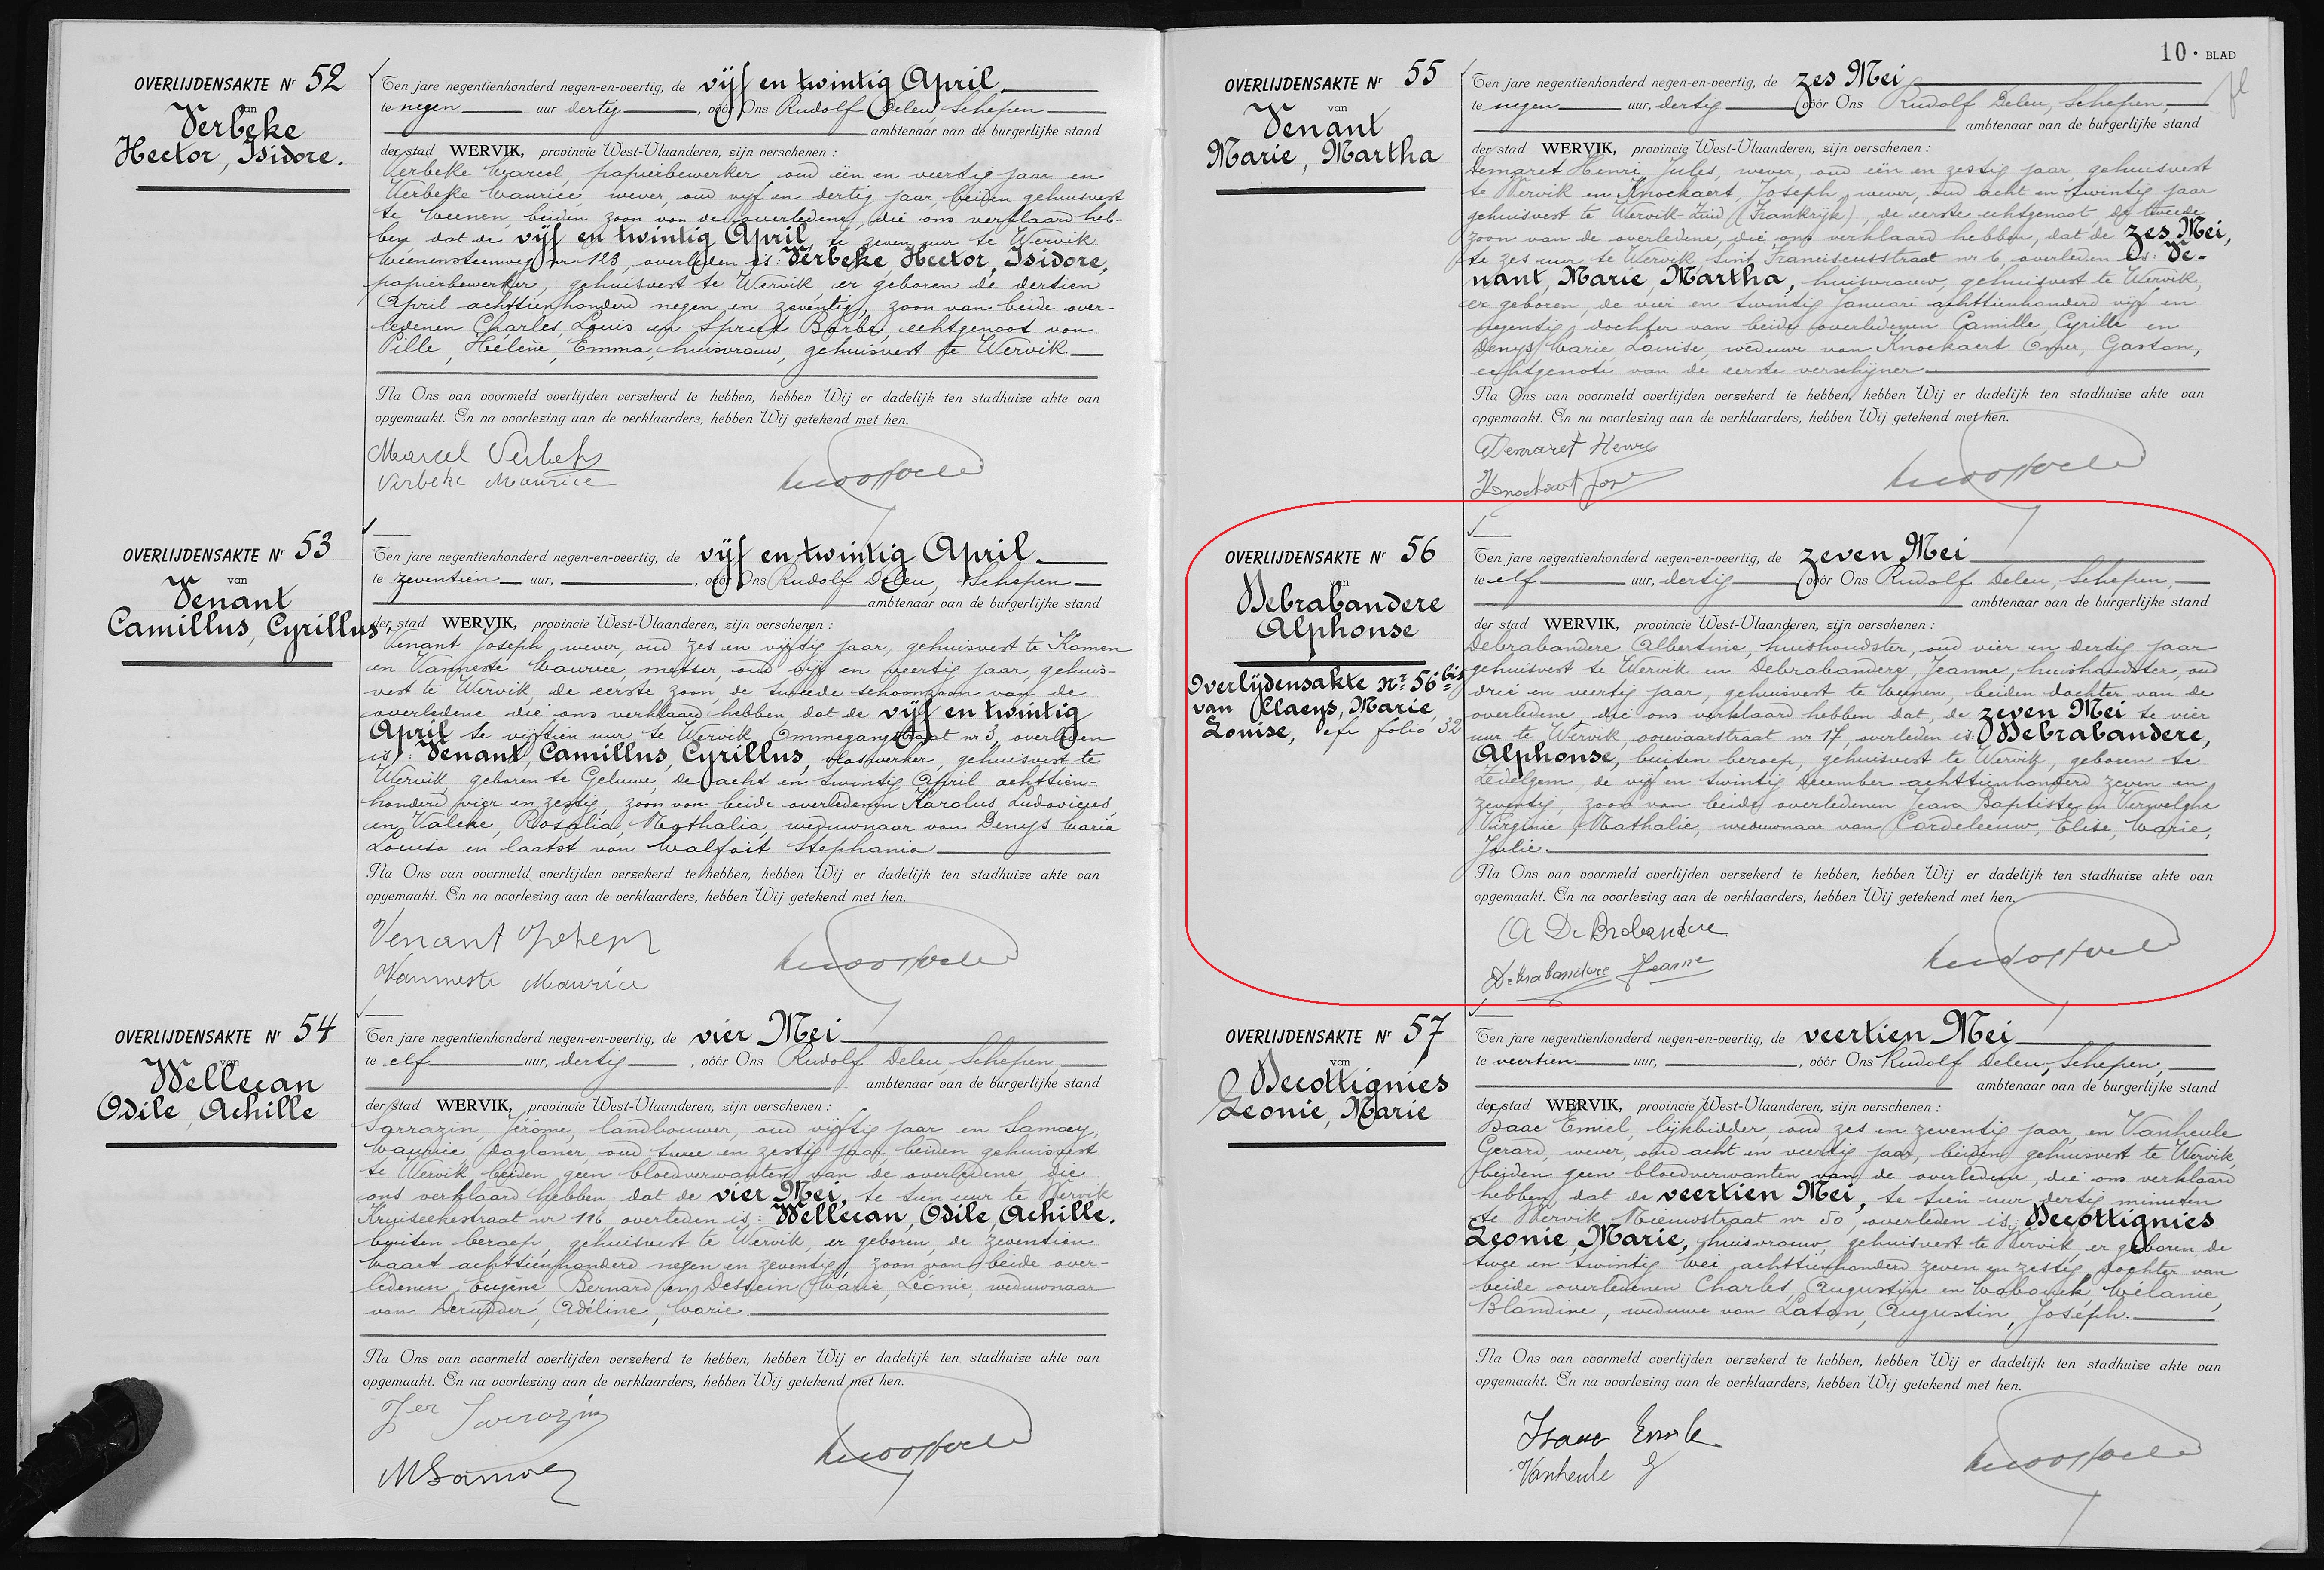 OVERLIJDENSAKTE Nr 52
van
Verbeke
Hector, Isidore.
Ten jare negentienhonderd negen-en-veertig, de vijf en twintig April
te negen uur dertig, vóór Ons Rudolf Deleu, Schepen
ambtenaar van de burgerlijke stand
der stad WERVIK, provincie West-Vlaanderen, zijn verschenen :
Verbeke Marcel, papierbewerker oud één en veertig jaar en
Verbeke Maurice, wever, oud vijf en dertig jaar, beiden gehuisvest
te Meenen, beiden zoon van de overledene, die ons verklaard heb-
ben dat de vijf en twintig April, te zeven uur te Wervik
Meenensteenweg nr 123, overleden is: Verbeke, Hector, Isidore,
papierbewerker, gehuisvest te Wervik er geboren de dertien
April achttienhonderd negen en zeventig, zoon van beide over-
ledenen Charles, Louis en Spriet Barbe, echtgenoot van
Pille, Hélène, Emma, huisvrouw, gehuisvest te Wervik
Na Ons van voormeld overlijden verzekerd te hebben, hebben Wij er dadelijk ten stadhuize akte van
opgemaakt. En na voorlezing aan de verklaarders, hebben Wij getekend met hen.
Marcel Verbeke
Verbeke Maurice
OVERLIJDENSAKTE Nr 53
van
Venant
Camillus, Cyrillus
Ten jare negentienhonderd negen-en-veertig, de vijf en twintig April
te zeventien uur, vóór Ons Rudolf Deleu, Schepen
ambtenaar van de burgerlijke stand
der stad WERVIK, provincie West-Vlaanderen, zijn verschenen :
Venant Joseph wever, oud zes en vijftig jaar, gehuisvest te Komen
en Vanneste Maurice, metser, oud vijf en veertig jaar, gehuis-
vest te Wervik, de eerste zoon, de tweede schoonzoon van de
overledene die ons verklaard hebben dat de vijf en twintig
April te vijftien uur te Wervik Ommegangstraat nr 3, overleden
is: Venant, Camillus, Cyrillus, vlaswerker, gehuisvest te
Wervik, geboren te Geluwe, de acht en twintig April achttien-
honderd vier en zestig, zoon van beide overledenen Karolus Ludovicus
en Valcke, Rosalia, Nathalia, weduwnaar van Denys Maria
Louisa en laatst van Malfait Stephania
Na Ons van voormeld overlijden verzekerd te hebben, hebben Wij er dadelijk ten stadhuize akte van
opgemaakt. En na voorlezing aan de verklaarders, hebben Wij getekend met hen.
Venant Joseph
Vanneste Maurice
OVERLIJDENSAKTE Nr 54
van
Wellecan
Odile, Achille
Ten jare negentienhonderd negen-en-veertig, de vier Mei
te elf uur, dertig, vóór Ons Rudolf Deleu, Schepen,
ambtenaar van de burgerlijke stand
der stad WERVIK, provincie West-Vlaanderen, zijn verschenen :
Sarrazin, Jerome, landbouwer, oud vijftig jaar en Samoey,
Maurice, dagloner, oud twee en zestig jaar, beiden gehuisvest
te Wervik beiden geen bloedverwanten van de overledene die
ons verklaard hebben dat de vier Mei, te tien uur te Wervik
Kruiseekestraat nr 116 overleden is: Wellecan, Odile, Achille.
buiten beroep, gehuisvest te Wervik, er geboren, de zeventien
Maart achttienhonderd negen en zeventig, zoon van beide over-
ledenen Eugène Bernard en Dessein Marie, Léonie, weduwnaar
van Derudder, Adéline, Marie.
Na Ons van voormeld overlijden verzekerd te hebben, hebben Wij er dadelijk ten stadhuize akte van
opgemaakt. En na voorlezing aan de verklaarders, hebben Wij getekend met hen.
Jer Sarrazin
M Samoey
10. BLAD
OVERLIJDENSAKTE Nr 55
van
Venant
Marie, Martha
Ten jare negentienhonderd negen-en-veertig, de zes Mei
te negen uur, dertig vóór Ons Rudolf Deleu, Schepen,
ambtenaar van de burgerlijke stand
der stad WERVIK, provincie West-Vlaanderen, zijn verschenen :
Demaret Henri Jules, wever, oud één en zestig jaar, gehuisvest
te Wervik en Knockaert, Joseph, wever, oud acht en twintig jaar
gehuisvest te Wervik-Zuid (Frankrijk), de eerste echtgenoot, de tweede
zoon van de overledene, die ons verklaard hebben, dat de zes Mei,
te zes uur te Wervik Sint Franciscusstraat nr 6, overleden is: Ve-
nant, Marie, Martha, huisvrouw, gehuisvest te Wervik,
er geboren, de vier en twintig Januari achttienhonderd vijf en
negentig, dochter van beide overledenen Camille, Cyrille en
Denys Marie, Louise, weduwe van Knockaert Omer, Gaston,
echtgenote van de eerste verschijner
Na Ons van voormeld overlijden verzekerd te hebben, hebben Wij er dadelijk ten stadhuize akte van
opgemaakt. En na voorlezing aan de verklaarders, hebben Wij getekend met hen.
Demaret Henri
Knockaert Jos
OVERLIJDENSAKTE Nr 56
van
Debrabandere
Alphonse
Overlijdensakte Nr. 56 bis
van Claeys, Marie,
Louise, Zefe folio 32
Ten jare negentienhonderd negen-en-veertig, de zeven Mei
te elf uur, dertig vóór Ons Rudolf Deleu, Schepen,
ambtenaar van de burgerlijke stand
der stad WERVIK, provincie West-Vlaanderen, zijn verschenen :
Debrabandere Albertine, huishoudster, oud vier en dertig jaar
gehuisvest te Wervik en Debrabandere, Jeanne, huishoudster, oud
drie en veertig jaar, gehuisvest te Meenen, beiden dochter van de
overledene, die ons verklaard hebben dat, de zeven Mei te vier
uur te Wervik, ooievaarstraat nr 17, overleden is: Debrabandere,
Alphonse, buiten beroep, gehuisvest te Wervik, geboren te
Zedelgem, de vijf en twintig December achttienhonderd zeven en
zeventig, zoon van beide overledenen Jean Baptiste en Verwelghe
Virginie Nathalie, weduwnaar van Cordeleeuw, Elise, Marie,
Julie.
Na Ons van voormeld overlijden verzekerd te hebben, hebben Wij er dadelijk ten stadhuize akte van
opgemaakt. En na voorlezing aan de verklaarders, hebben Wij getekend met hen.
A De Brabandere
Debrabandere Jeanne
OVERLIJDENSAKTE Nr 57
van
Decottignies
Leonie, Marie
Ten jare negentienhonderd negen-en-veertig, de veertien Mei
te veertien uur, vóór Ons Rudolf Deleu, Schepen,
ambtenaar van de burgerlijke stand
der stad WERVIK, provincie West-Vlaanderen, zijn verschenen :
Isaac Emiel, lijkbidder, oud zes en zeventig jaar, en Vanheule
Gerard, wever, oud acht en veertig jaar, beiden gehuisvest te Wervik,
beiden geen bloedverwanten van de overledene, die ons verklaard
hebben, dat de veertien Mei, te tien uur dertig minuten
te Wervik Nieuwstraat nr 50, overleden is: Decottignies
Leonie, Marie, huisvrouw, gehuisvest te Wervik, er geboren de
twee en twintig Mei achttienhonderd zeven en zestig, dochter van
beide overledenen Charles, Augustin en Mabouek, Mélanie,
Blandine, weduwe van Laton, Augustin, Joséph.
Na Ons van voormeld overlijden verzekerd te hebben, hebben Wij er dadelijk ten stadhuize akte van
opgemaakt. En na voorlezing aan de verklaarders, hebben Wij getekend met hen.
Isaac Emiel
Vanheule G